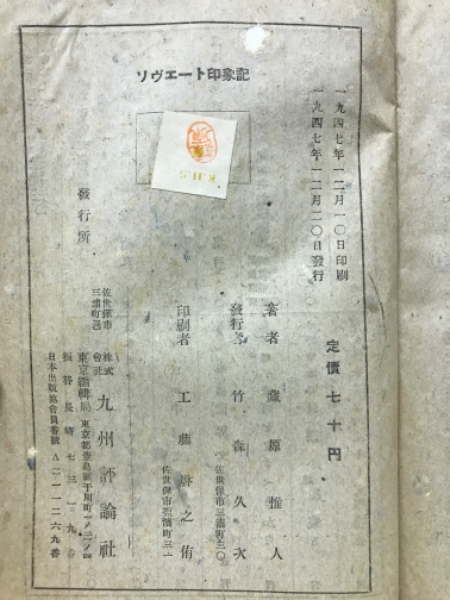 ソヴエート印象記
一九四七年一二月一〇日印刷
一九四七年一二月二〇日發行
定價七十円
著者 藏原惟人
發行者 竹森久次
佐世保市三浦町三〇
印刷者 工藤 之侑
佐世保市 浦町三一
發行所
佐世保市
三浦町
株式會社 九州評論社
東京編輯局 東京都豊島區千川町一ノ二ノ四
振替長崎七三一九番
日本出版協會員番號 A二一一二六九番
K.H.S